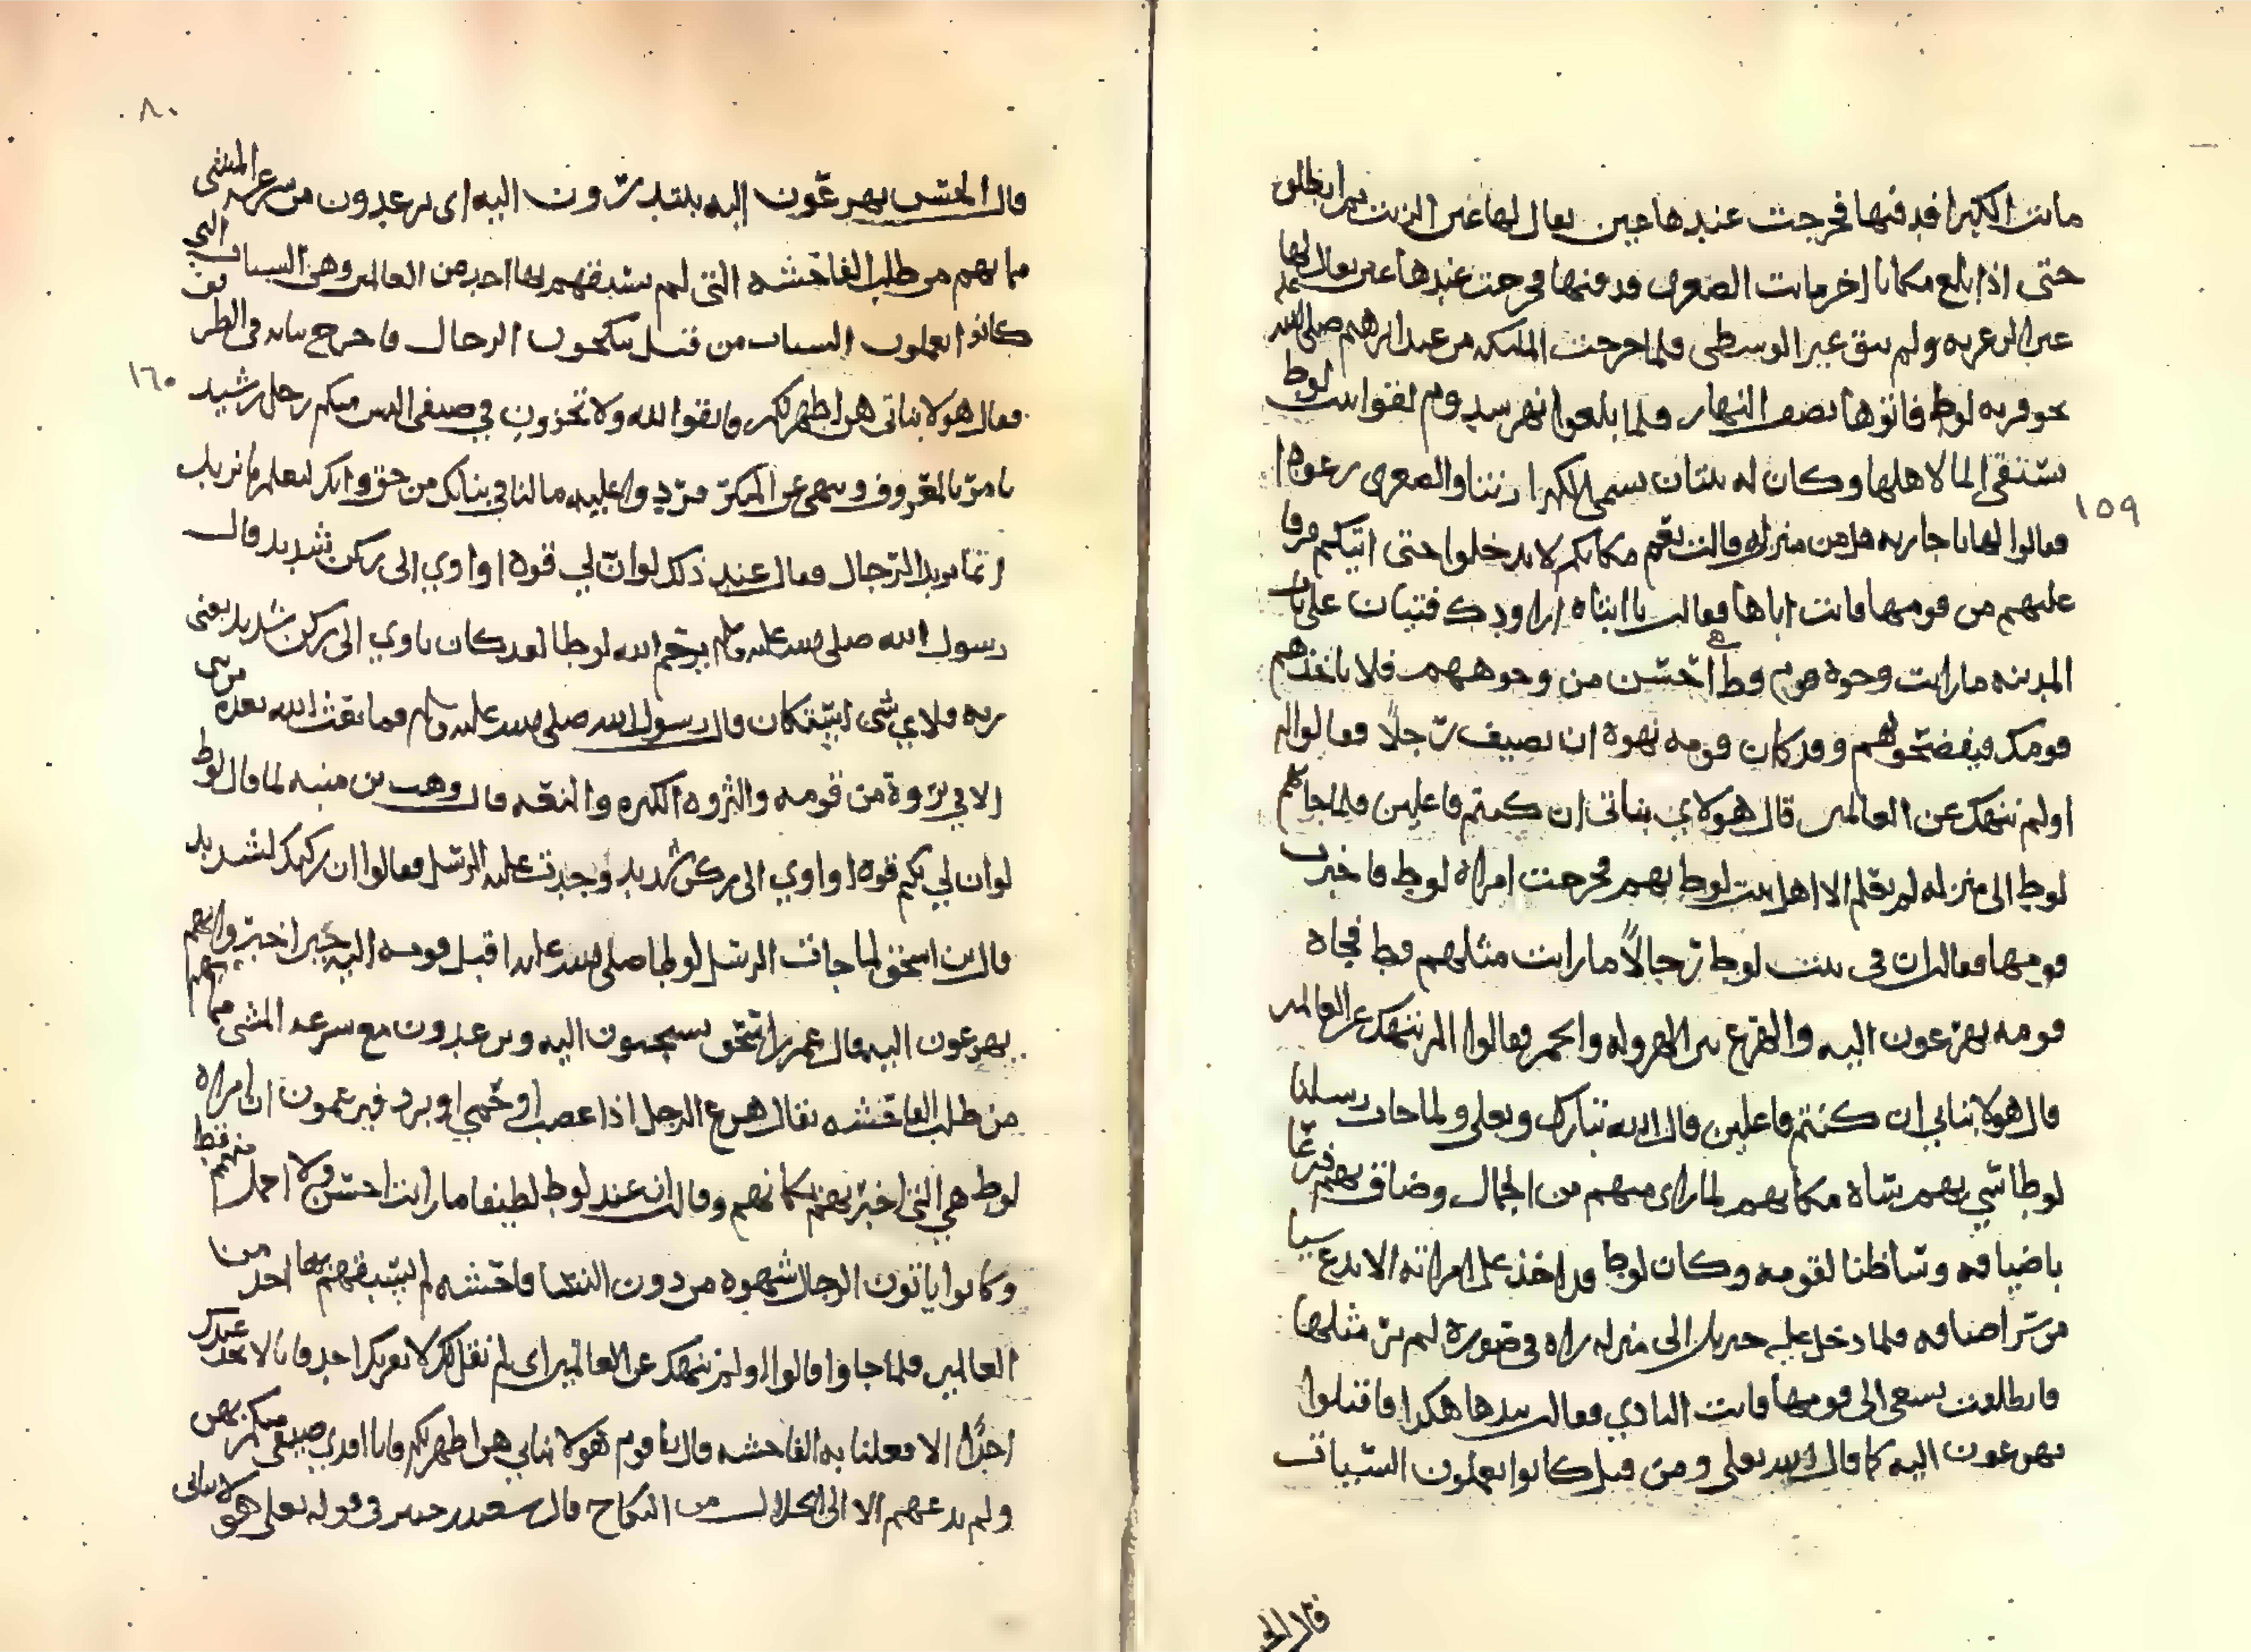 ماتت الكبرا فدفنها فخرجت عندها عين يقال لها عين الزيت ثم انطلق
حتى اذا بلغ مكانا اخر ماتت الصغرى فدفنها فخرجت عندها عين يقال لها
عين الزغريه ولم يبق غير الوسطى فلما خرجت المليكه من عند ابرهيم صلى الله عليه
نحو قريه لوط فاتوها نصف النهار فلما بلغوا نهر سدوم لقوا بنت لوط
تستقي الما لاهلها وكان له بنتان تسمى الكبرا رنثا والصغرى رعوثا
١٥٩
فقالوا لها يا جاريه هل من منزل قالت نعم مكانكم لا تدخلوا حتى اتيكم فرقا
عليهم من قومها فاتت اباها فقالت يا ابتاه ارادوك فتيان على باب
المدينه ما رايت وجوه قوم قط احسن من وجوههم فلا ياخذهم
قومك فيفضحوهم وقد كان قومه نهوه ان يضيف رجلا فقالوا له
اولم ننهك عن العالمين قال هولاي بناتي ان كنتم فاعلين فلما جا بهم
لوط الى منزله لم يعلم الا اهل بيت لوط بهم فخرجت امراه لوط فاخبرت
قومها فقالت ان في بيت لوط رجالا ما رايت مثلهم قط فجاه
قومه يهرعون اليه والهرع بين الهروله والجمز فقالوا الم ننهك عن العالمين
قال هولا بناتي ان كنتم فاعلين قال الله تبارك وتعلى ولما جات رسلنا
لوطا سي بهم ساه مكانهم لما راى منهم من الجمال وضاق بهم ذرعا
باضيافه وساظنا لقومه وكان لوط قد اخذ على امراته الا تدع سيا
من سر اضيافه فلما دخل عليه جبريل الى منزله راه في صوره لم تر مثلها
فانطلقت تسعى الى قومها فاتت النادي فقالت بيدها هكذا فاقبلوا
يهرعون اليه كما قال الله تعلى ومن قبل كانوا يعملون السيات
قال الح
٨٠
قال الحسن يهرعون اليه يبتدرون اليه اى يرعدون من سرعه المشى
مما بهم من طلب الفاحشه التى لم يسبقهم بها احد من العالمين وهى السيات التي
كانوا يعملون السيات من قبل ينكحون الرجال فاخرج بناته في الطريق
١٦٠
فقال هولا بناتى هن اطهر لكم فاتقوا الله ولا تخزون في ضيفى اليس منكم رجل رشيد
يامر بالمعروف وينهى عن المنكر فردوا عليه ما لنا في بناتك من حق وانك لتعلم ما نريد
انما نريد الرجال فقال عند ذلك لو ان لي بكم قوه او اوي الى ركن شديد قال
رسول الله صلى الله عليه وسلم يرحم الله لوطا لقد كان ياوي الى ركن شديد يعنى
ربه فلاي شى استكان قال رسول الله صلى الله عليه وسلم فما بعث الله بعده من نبي
الا في ثروة من قومه والثروه الكثره والمنعه قال وهب بن منبه لما قال لوط
لو ان لي بكم قوه او اوي الى ركن شديد وجدت عليه الرسل فقالوا ان ركنك لشديد
قال ابن اسحق لما جات الرسل لوطا صلى الله عليه اقبل قومه اليه حين اخبروا بهم
يهرعون اليه قال عمر بن اسحق يستحثون اليه ويرعدون مع سرعه المشى مما بهم
من طلب الفاحشه يقال هرع الرجل اذا غضب او حمي او برد فيزعمون ان امراه
لوط هي التى اخبرتهم بمكانهم وقالت ان عند لوط لضيفا ما رايت احسن ولا اجمل منهم قط
وكانوا ياتون الرجال شهوه من دون النسا فاحشه لم يسبقهم بها احد من
العالمين فلما جاوا قالوا اولم ننهك عن العالمين اى لم نقل لك لا يقربك احد فانا لا نجد عندك
احدا الا فعلنا به الفاحشه قال يا قوم هولا بناتي هن اطهر لكم فانا افدي ضيفى منكم بهن
ولم يدعهم الا الى الحلال من النكاح قال سعيد بن جبير في قوله تعلى هولا بناتى